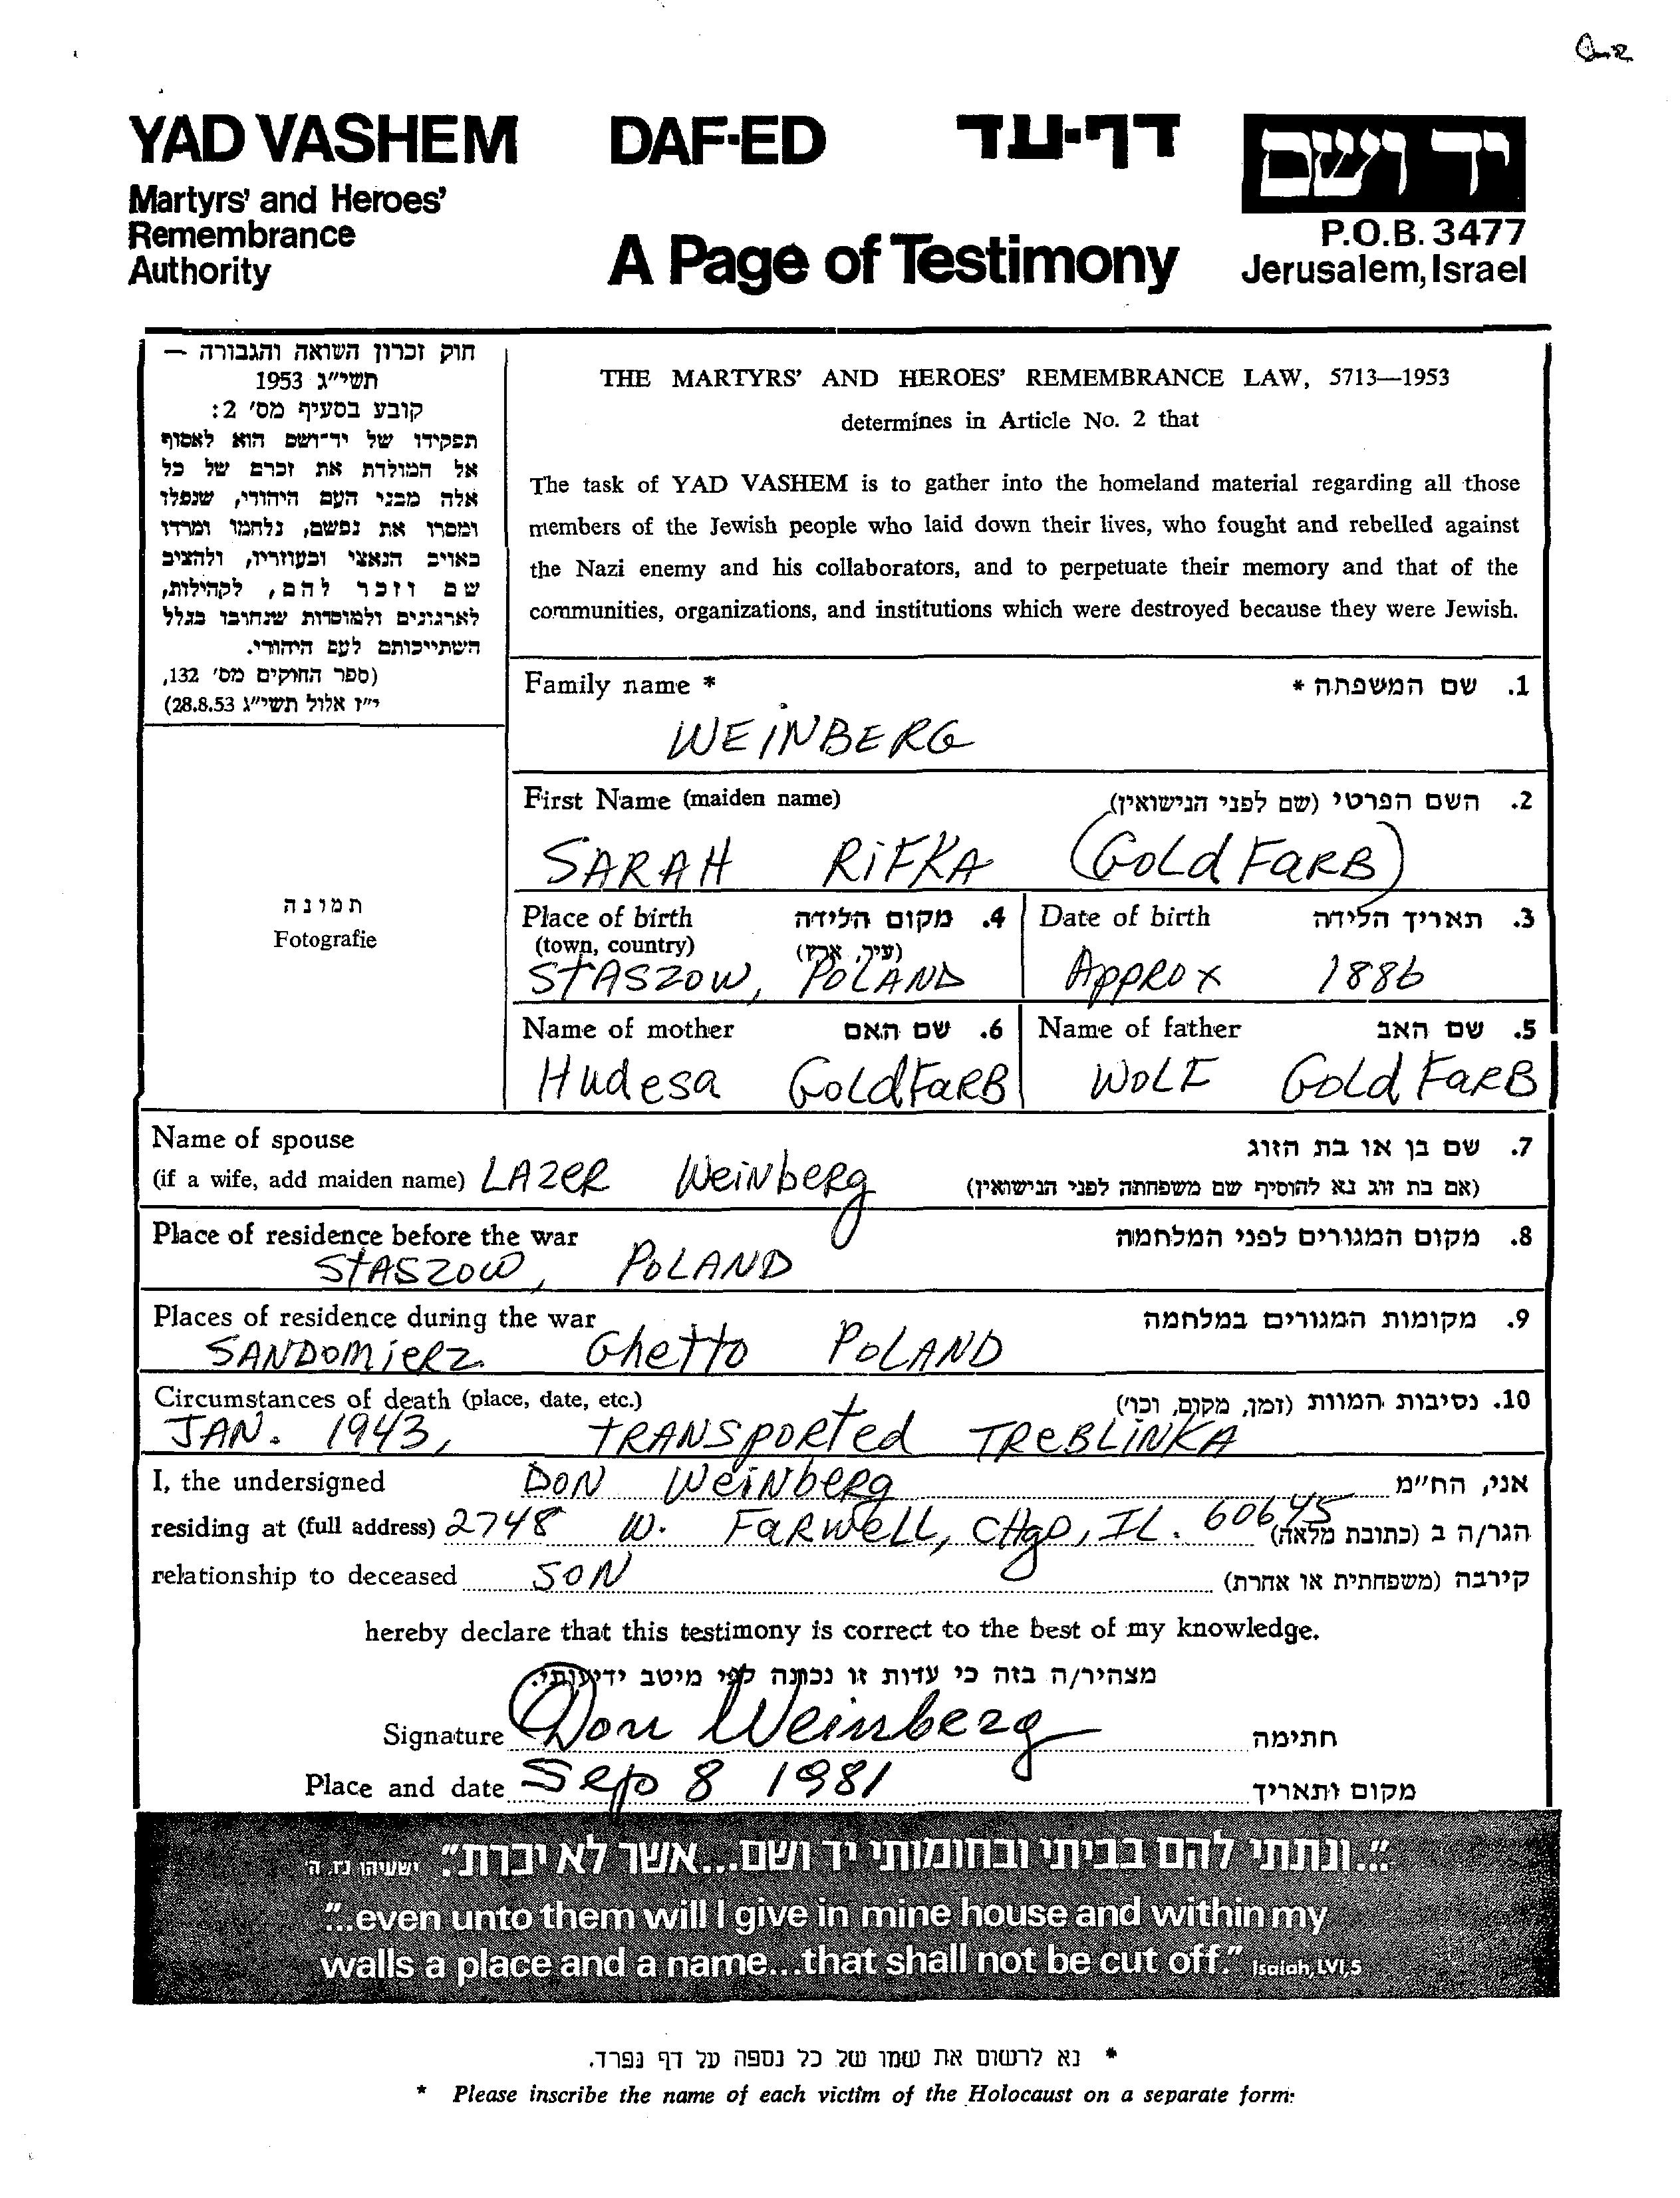 YAD VASHEM DAF-ED דף-עד יד ושם
Martyrs' and Heroes'
Remembrance
Authority
A Page of Testimony
P.O.B. 3477
Jerusalem, Israel
חוק זכרון השואה והגבורה —
תשי"ג 1953
קובע בסעיף מס' 2:
תפקידו של יד-ושם הוא לאסוף
אל המולדת את זכרם של כל
אלה מבני העם היהודי, שנפלו
ומסרו את נפשם, נלחמו ומרדו
באויב הנאצי ובעוזריו, ולהציב
שם וזכר להם, לקהילות,
לארגונים ולמוסדות שנחרבו בגלל
השתייכותם לעם היהודי.
(ספר החוקים מס' 132,
י"ז אלול תשי"ג 28.8.53)
THE MARTYRS' AND HEROES' REMEMBRANCE LAW, 5713—1953
determines in Article No. 2 that
The task of YAD VASHEM is to gather into the homeland material regarding all those
members of the Jewish people who laid down their lives, who fought and rebelled against
the Nazi enemy and his collaborators, and to perpetuate their memory and that of the
communities, organizations, and institutions which were destroyed because they were Jewish.
Family name * 1. שם המשפחה *
WEINBERG
First Name (maiden name) 2. השם הפרטי (שם לפני הנישואין)
SARAH RIFKA (GoLd FaRB)
תמונה
Fotografie
Place of birth 4. מקום הלידה
(town, country) (עיר, ארץ)
STASZOW, POLAND
Date of birth 3. תאריך הלידה
APPROX 1886
Name of mother 6. שם האם
Hudesa GoldFaRB
Name of father 5. שם האב
WOLF Gold FaRB
Name of spouse 7. שם בן או בת הזוג
(if a wife, add maiden name) LAZeR WeiNbeRg (אם בת זוג נא להוסיף שם משפחתה לפני הנישואין)
Place of residence before the war 8. מקום המגורים לפני המלחמה
STASZOW, POLAND
Places of residence during the war 9. מקומות המגורים במלחמה
SANDOMieRZ Ghetto POLAND
Circumstances of death (place, date, etc.) 10. נסיבות המוות (זמן, מקום, וכו')
JAN. 1943, TRANSpORted TReBLiNKA
I, the undersigned DON WeiNbeRg אני, הח"מ
residing at (full address) 2748 W. FaRWeLL, CHgo, IL. 60645 הגר/ה ב (כתובת מלאה)
relationship to deceased SON קירבה (משפחתית או אחרת)
hereby declare that this testimony is correct to the best of my knowledge.
מצהיר/ה בזה כי עדות זו נכונה לפי מיטב ידיעותי.
Signature Don Weinberg חתימה
Place and date Sep 8 1981 מקום ותאריך
"...ונתתי להם בביתי ובחומותי יד ושם...אשר לא יכרת". ישעיהו נו, ה'
"...even unto them will I give in mine house and within my
walls a place and a name...that shall not be cut off." Isaiah, LVI, 5
* נא לרשום את שמו של כל נספה על דף נפרד.
* Please inscribe the name of each victim of the Holocaust on a separate form: